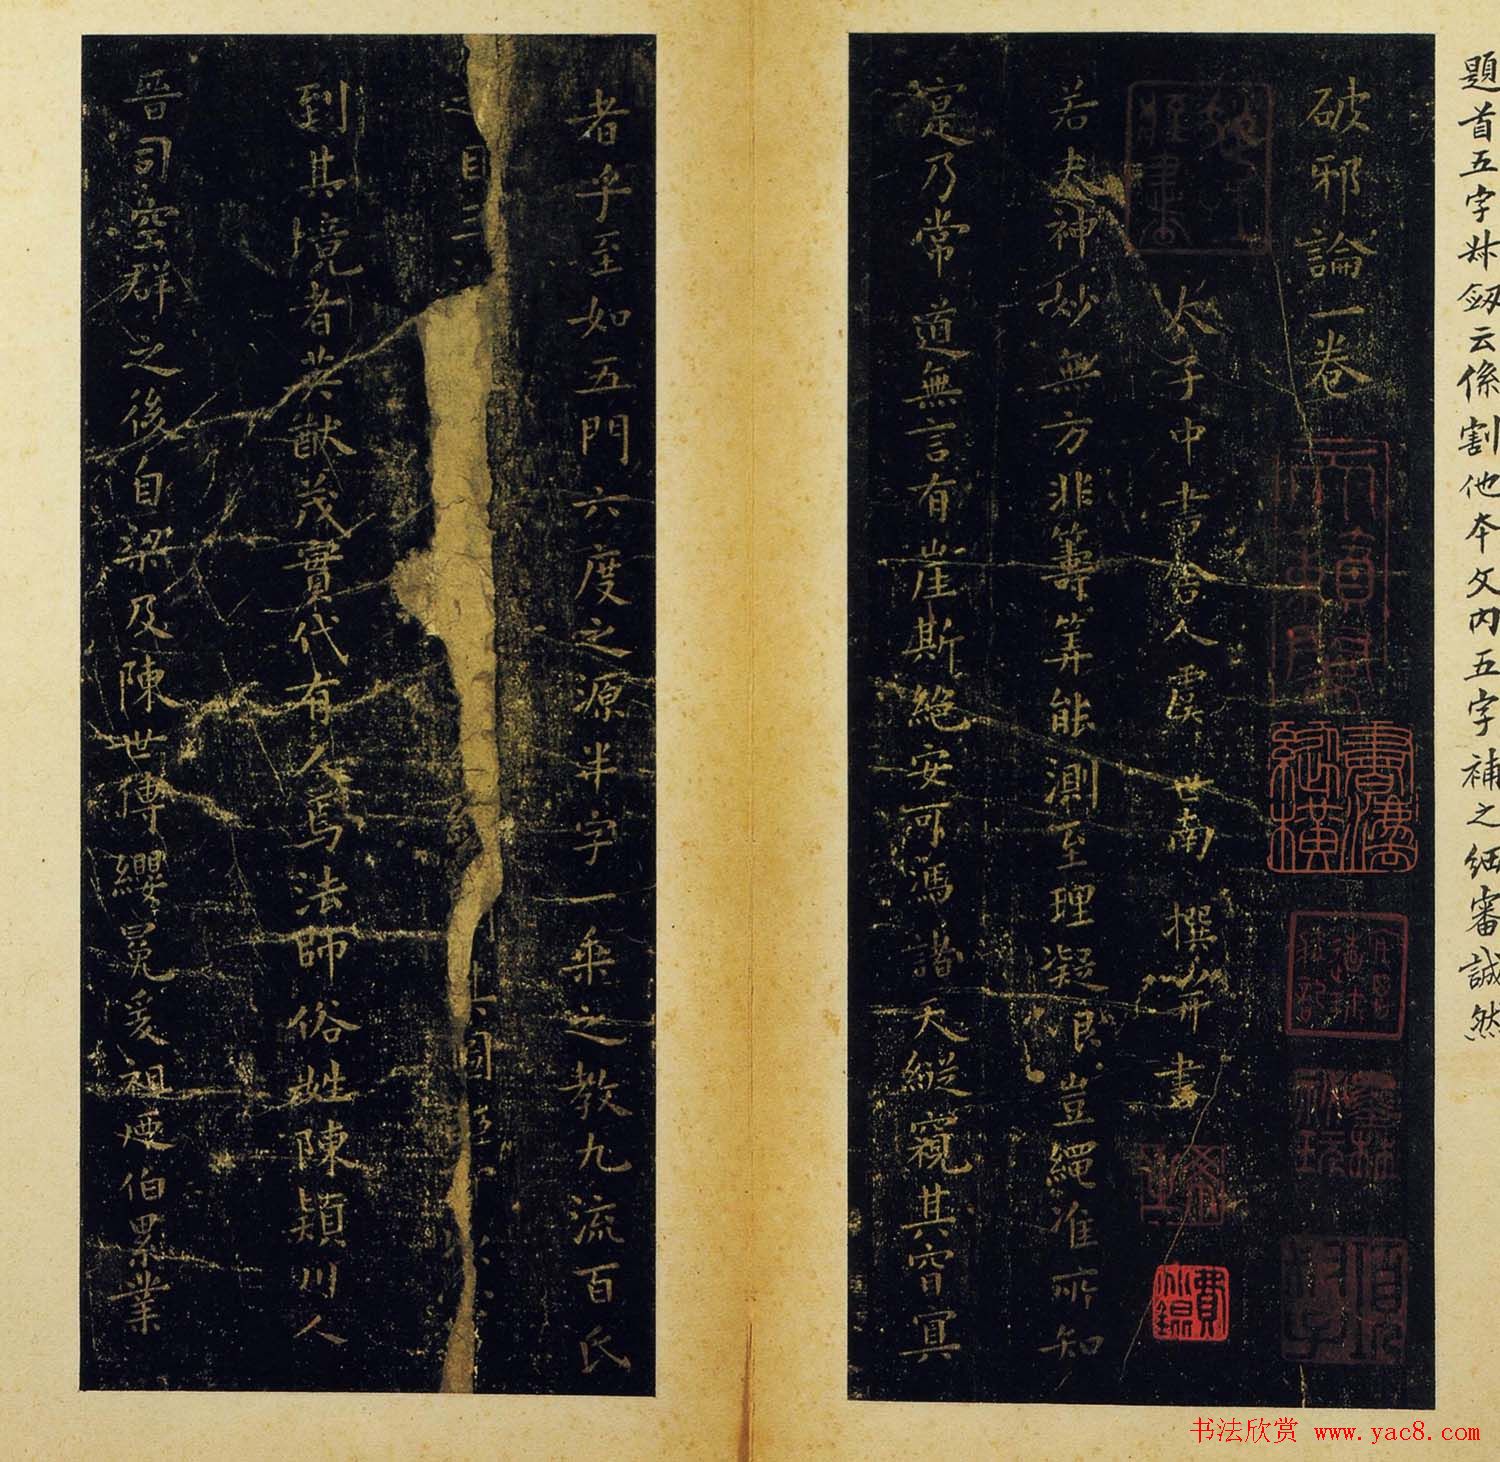 題首五字叔釼云係割他本文内五字補之細審誠然
破邪論一卷
太子中書舍人虞世南撰并書
若夫神妙無方非籌筭能測至理凝邈豈繩准所知
寔乃常道無言有崖斯絶安可馮諸天縱窺其窅冥
者乎至如五門六度之源半字一乘之教九流百氏
之目三
到其境者英猷茂實代有人焉法師俗姓陳潁川人
晉司空群之後自梁及陳世傳纓冕爰祖及伯累業
書法縱橫
費
书法欣赏 www.yac8.com